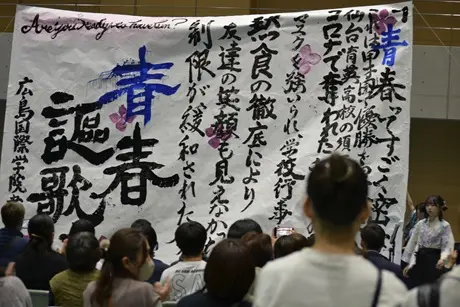 青春ってすごく密
甲子園優勝を
仙台育英高校の須
コロナで奪われた
マスクを強いられ、学校行事
黙食の徹底により
友達の笑顔も見えなか
制限が緩和された
Are you ready to have fun?
青春
謳歌
広島国際学院